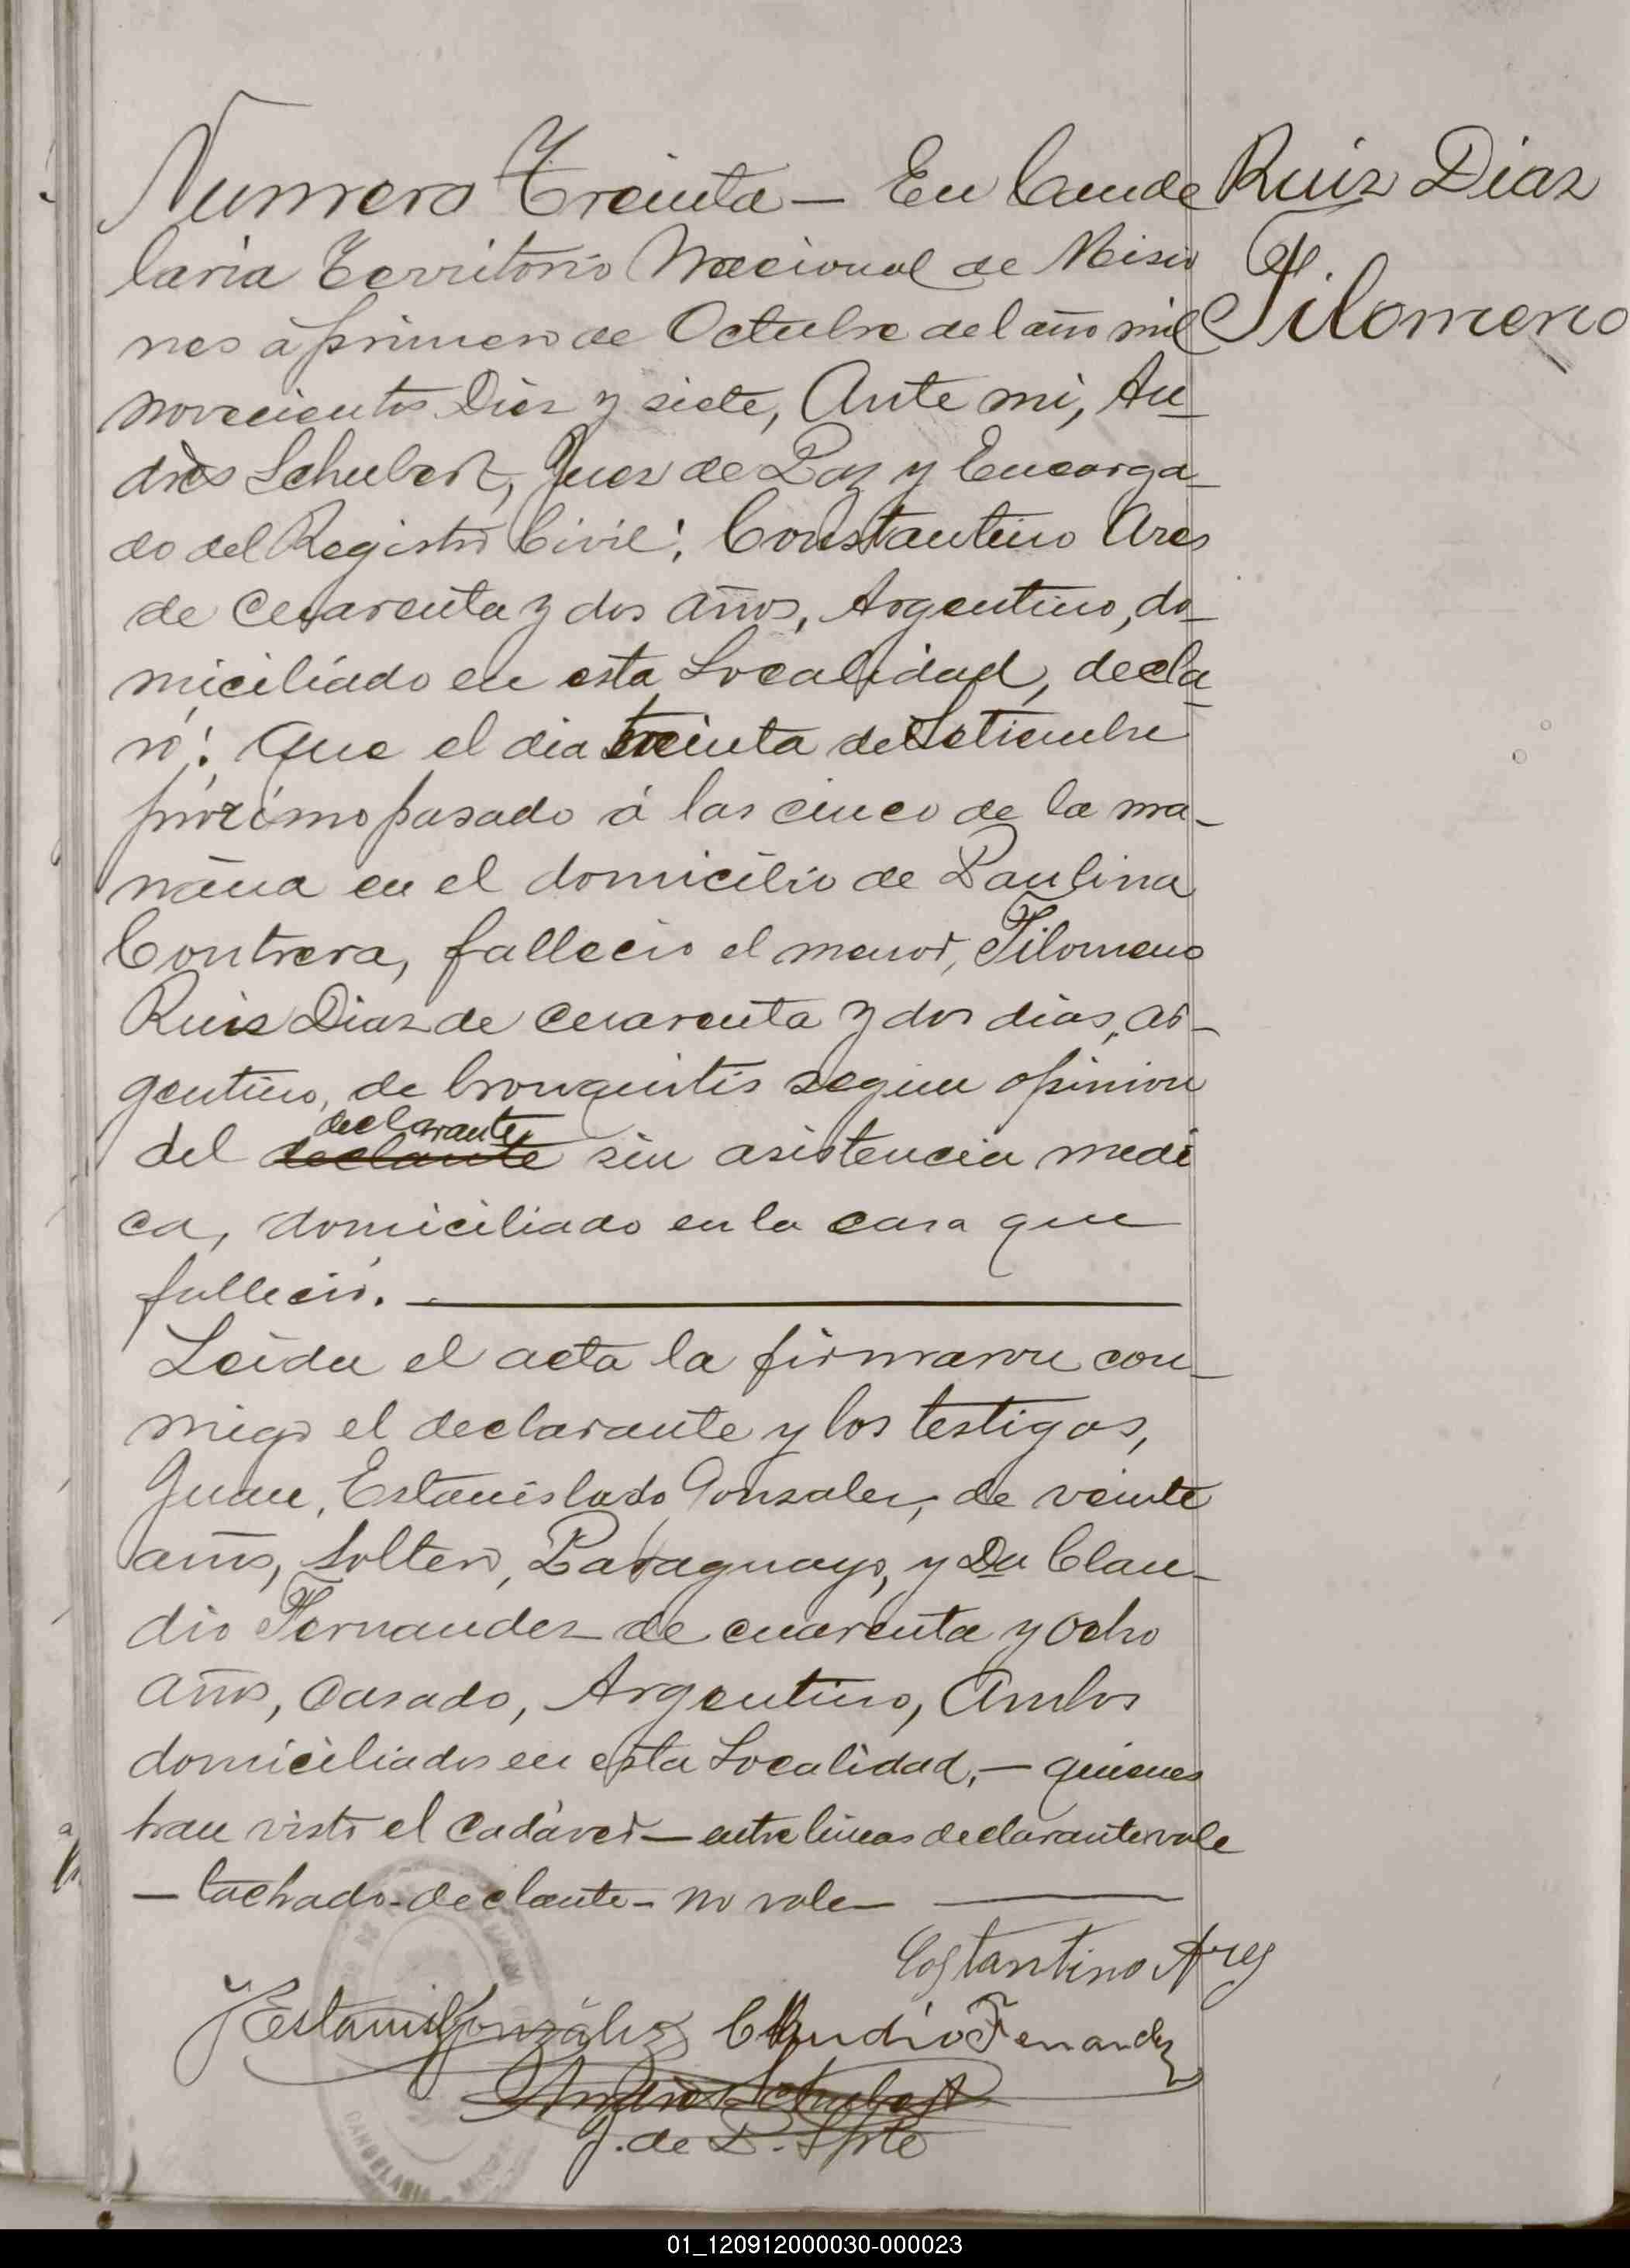 Numero Treinta — En Cande
laria Territorio Nacional de Misio
nes á primero de Octubre del año mil
novecientos Diez y siete, Ante mi, An-
drès Schubert, Juez de Paz y Encarga-
do del Registro Civil; Constantino Ares
de Cuarenta y dos años, Argentino, do-
miciliado en esta Localidad, decla-
ró: Que el dia treinta de Setiembre
próximo pasado á las cinco de la ma-
ñana en el domicilio de Paulina
Contrera, fallecio el menor, Filomeno
Ruis Diaz de cuarenta y dos dias, ar-
gentino, de bronquitis segun opinion
declarante
del declante sin asistencia medi
ca, domiciliado en la casa que
falleció.
Leida el acta la firmaron con-
migo el declarante y los testigos,
Juan, Estanislado Gonzalez, de veinte
años, Soltero, Paraguayo, y Dn Clau-
dio Fernandez de cuarenta y ocho
años, Casado, Argentino, Ambos
domiciliados en esta Localidad, — quienes
han visto el cadáver — entre lineas declarante vale
— tachado - declante - no vale —
Costantino Ares
J Estanis González Claudio Fenandez
Andrès Schubert
J. de P. Splte
Ruiz Diaz
F.
Filomeno
CANDELARIA
01_120912000030-000023